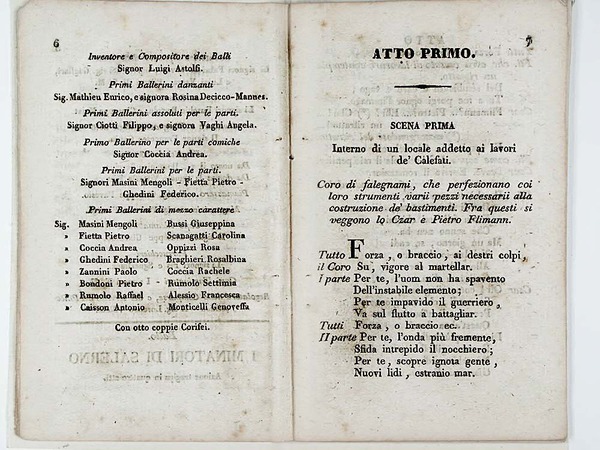 6
Inventore e Compositore dei Balli
Signor Luigi Astolfi.
Primi Ballerini danzanti
Sig. Mathieu Enrico, e signora Rosina Decicco-Mannes.
Primi Ballerini assoluti per le parti.
Signor Ciotti Filippo, e signora Vaghi Angela.
Primo Ballerino per le parti comiche
Signor Coccia Andrea.
Primi Ballerini per le parti.
Signori Masini Mengoli - Fietta Pietro -
Ghedini Federico.
Primi Ballerini di mezzo carattere
Sig. Masini Mengoli Bussi Giuseppina
» Fietta Pietro Scanagatti Carolina
» Coccia Andrea Oppizzi Rosa
» Ghedini Federico Braghieri Rosalbina
» Zannini Paolo Coccia Rachele
» Bondoni Pietro Rumolo Settimia
» Rumolo Raffael Alessio Francesca
» Caisson Antonio Monticelli Genoveffa
Con otto coppie Corifei.
I MINATORI DI SALERNO
7
ATTO PRIMO.
SCENA PRIMA
Interno di un locale addetto ai lavori
de' Calefati.
Coro di falegnami, che perfezionano coi
loro strumenti varii pezzi necessarii alla
costruzione de' bastimenti. Fra questi si
veggono lo Czar e Pietro Flimann.
Tutto Forza, o braccio, ai destri colpi,
il Coro Su, vigore al martellar.
I parte Per te, l'uom non ha spavento
Dell'instabile elemento;
Per te impavido il guerriero
Va sul flutto a battagliar.
Tutti Forza, o braccio ec.
II parte Per te, l'onda più fremente,
Sfida intrepido il nocchiero;
Per te, scopre ignota gente,
Nuovi lidi, estranio mar.